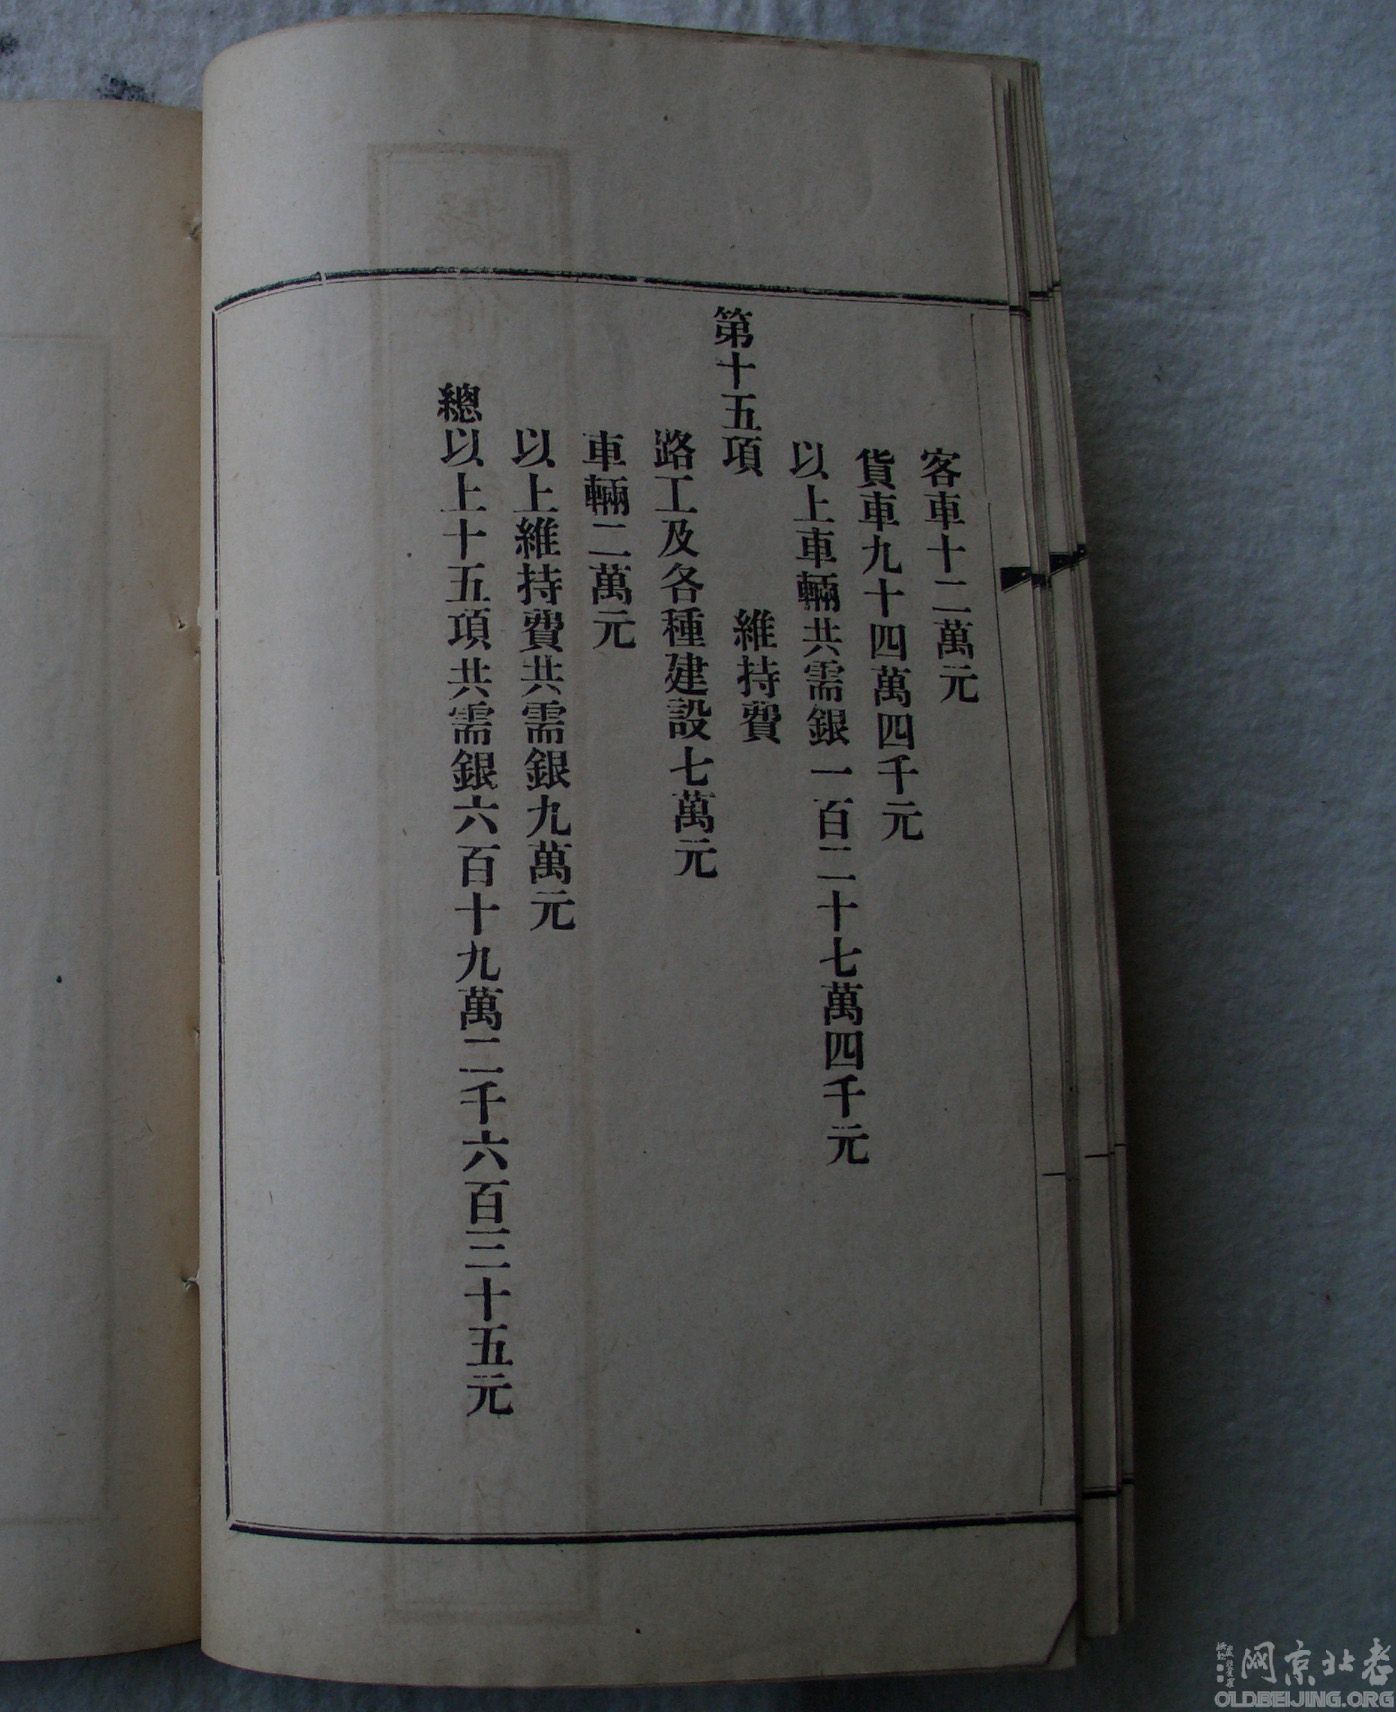 客車十二萬元
貨車九十四萬四千元
以上車輛共需銀一百二十七萬四千元
第十五項 維持費
路工及各種建設七萬元
車輛二萬元
以上維持費共需銀九萬元
總以上十五項共需銀六百十九萬二千六百三十五元
老北京网
OLDBEIJING.ORG